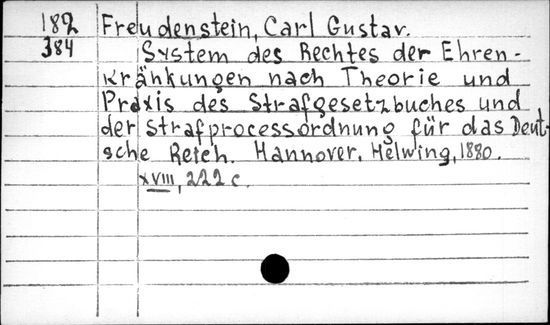 182 Freudenstein, Carl Gustav.
384 System des Rechtes der Ehren-
kränkungen nach Theorie und
Práxis des Strafgesetzbuches und
der Strafprocessordnung für das Deut-
sche Reich. Hannover, Helwing, 1880.
XVIII, 222 c.